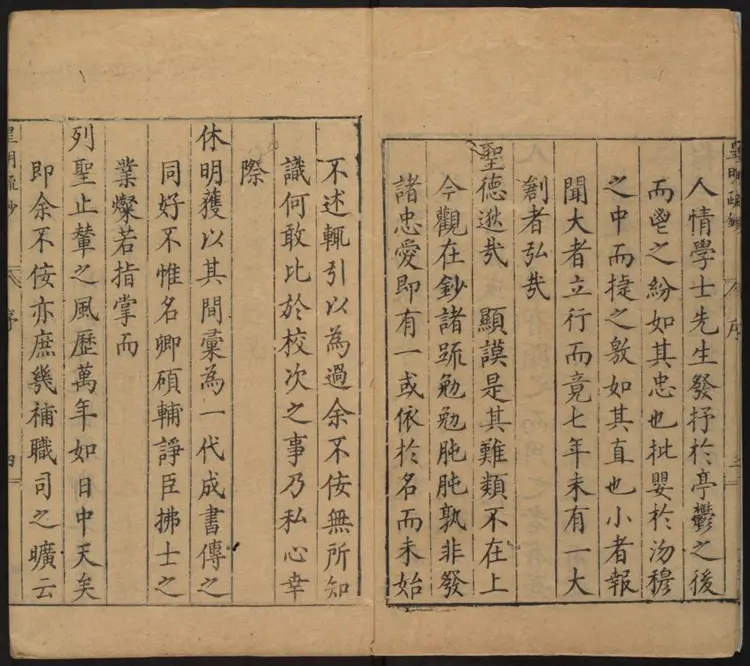 皇明疏鈔 序
人情學士先生發抒於亭鬱之後
而鬯之紛如其忠也批嬰於沕穆
之中而捷之敫如其直也小者報
聞大者立行而竟七年未有一大
創者弘哉
聖德逖哉 顯謨是其難類不在上
今觀在鈔諸䟽勉勉肫肫孰非發
諸忠愛即有一或依於名而未始
不述輒引以為過余不佞無所知
識何敢比於校次之事乃私心幸
際
休明獲以其間彙為一代成書傳之
同好不惟名卿碩輔諍臣拂士之
業燦若指掌而
列聖止輦之風歷萬年如日中天矣
即余不佞亦庶幾補職司之曠云
皇明疏鈔 序 四